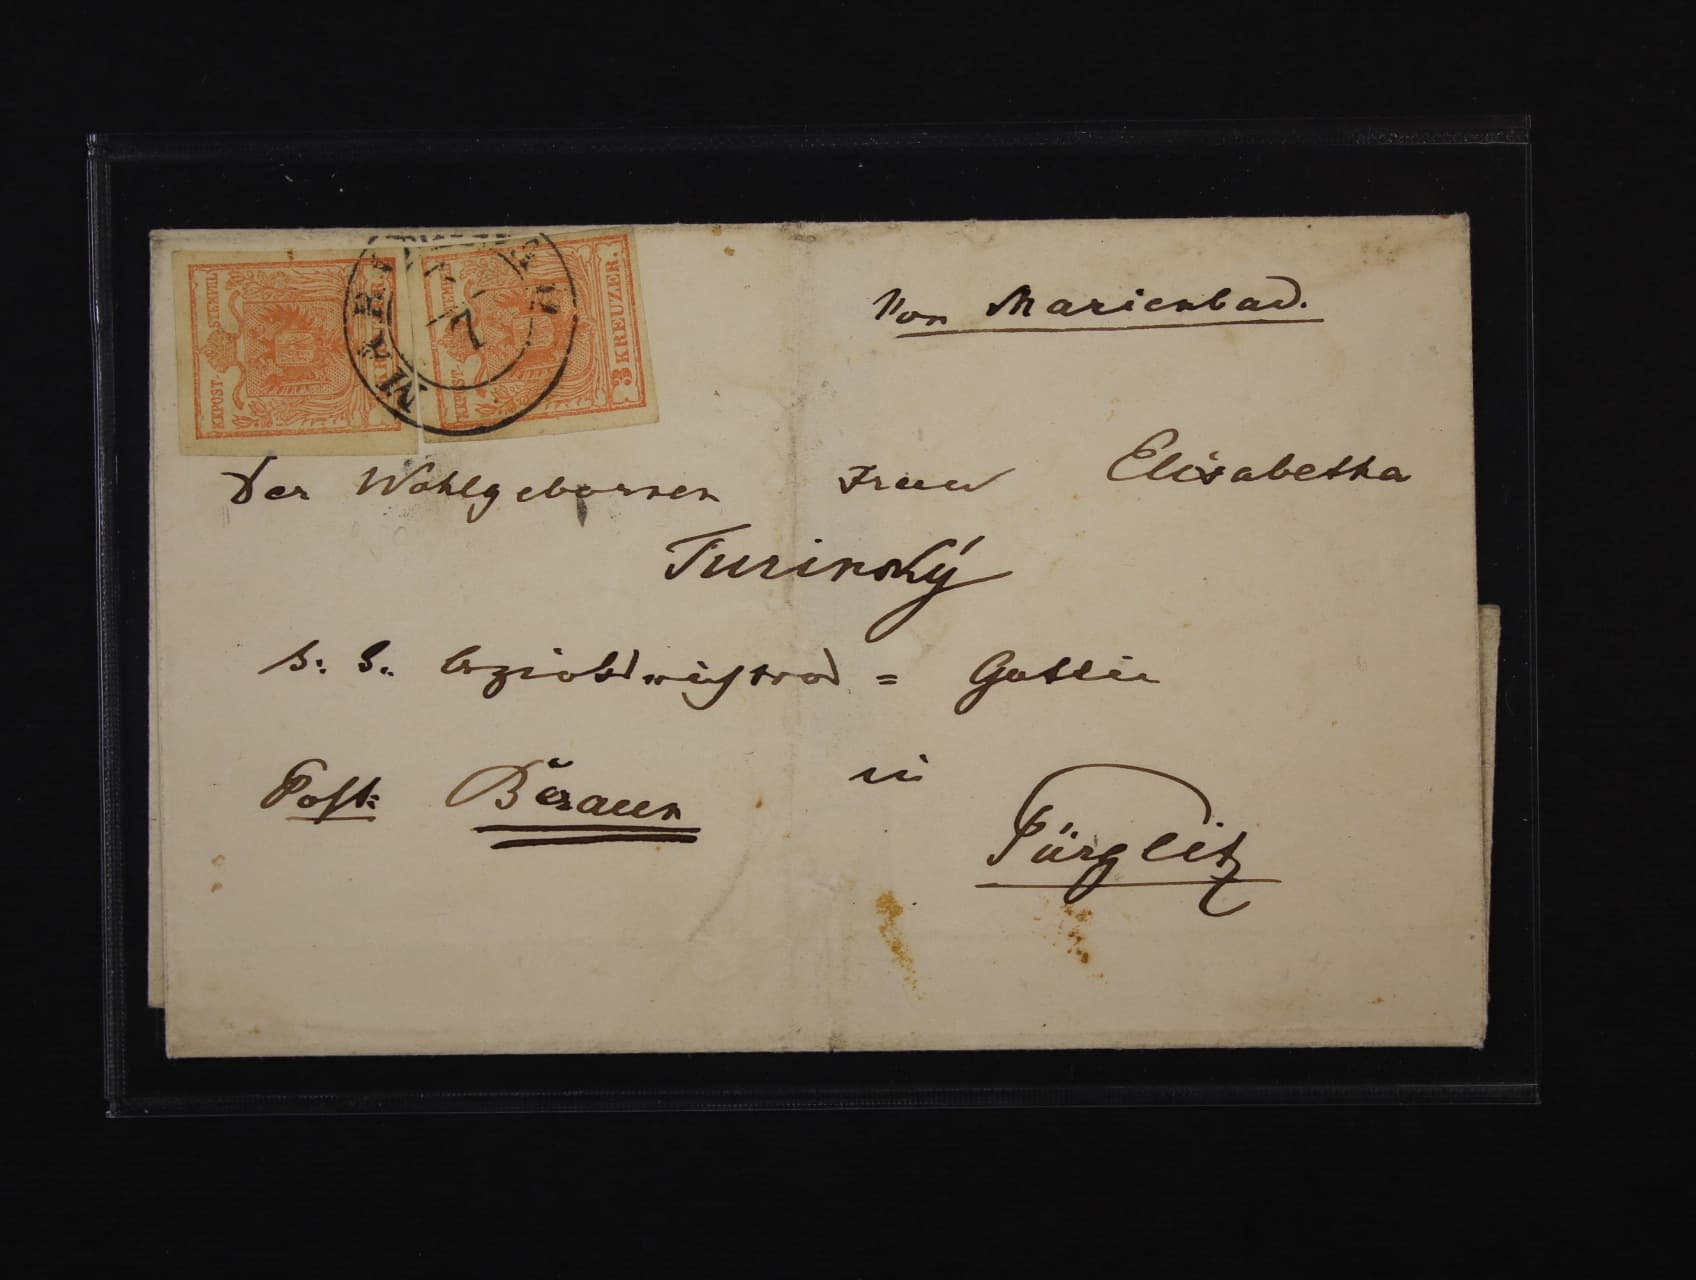 KKPOST-STEMPEL
KKPOST-STEMPEL
3 KREUZER.
MARIENBAD
Von Marienbad.
Der Wohlgebornen Frau Elisabetha
Turinský
k: k: Bezirksrichters = Gattin
in
Post: Beraun
Pürglitz